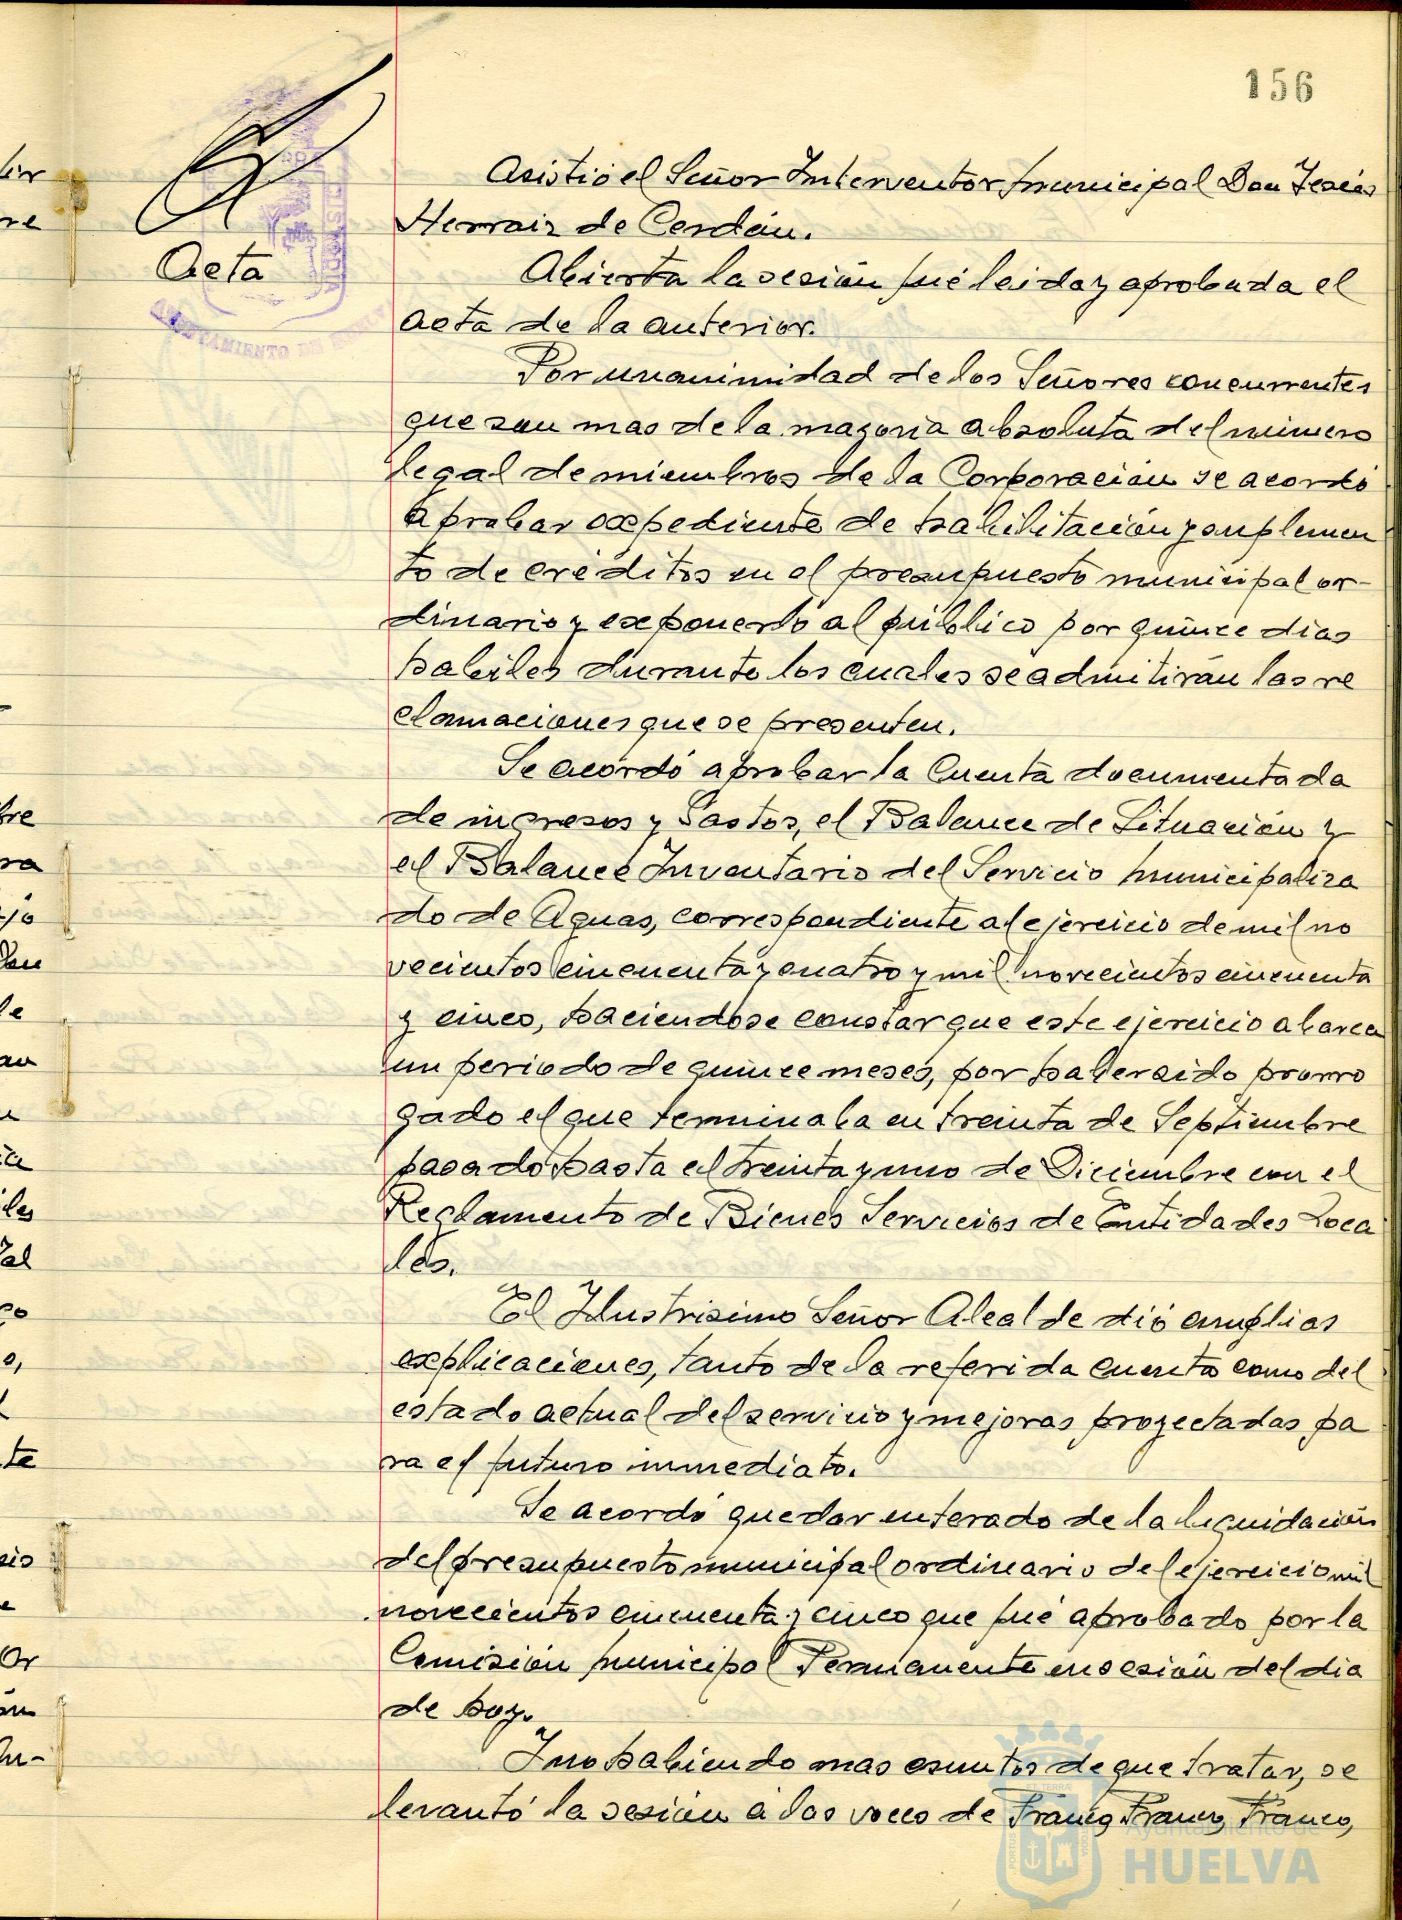 156
Asistió el Señor Interventor municipal Don Jesús
Herraiz de Cerdán.
Acta
Abierta la sesión fué leida y aprobada el
acta de la anterior.
Por unanimidad de los Señores concurrentes
que son mas de la mayoria absoluta del número
legal de miembros de la Corporación se acordó
aprobar expediente de habilitación y suplemen
to de créditos en el presupuesto municipal or-
dinario y exponerlo al público por quince dias
habiles durante los cuales se admitirán las re
clamaciones que se presenten.
Se acordó aprobar la Cuenta documentada
de ingresos y Gastos, el Balance de Situación y
el Balance Inventario del Servicio municipaliza
do de Aguas, correspondiente al ejercicio de mil no
vecientos cincuenta y cuatro y mil novecientos cincuenta
y cinco, haciendose constar que este ejercicio abarca
un periodo de quince meses, por haber sido prorro
gado el que terminaba en treinta de Septiembre
pasado hasta el treinta y uno de Diciembre con el
Reglamento de Bienes Servicios de Entidades Loca
les.
El Ilustrisimo Señor Alcalde dió amplias
explicaciones, tanto de la referida cuenta como del
estado actual del servicio y mejoras proyectadas pa
ra el futuro inmediato.
Se acordó quedar enterado de la liquidación
del presupuesto municipal ordinario del ejercicio mil
novecientos cincuenta y cinco que fué aprobado por la
Comisión municipal Permanente en sesión del dia
de hoy.
Y no habiendo mas asuntos de que tratar, se
levantó la sesión a las voces de Franco, Franco, Franco,
Ayuntamiento de
HUELVA